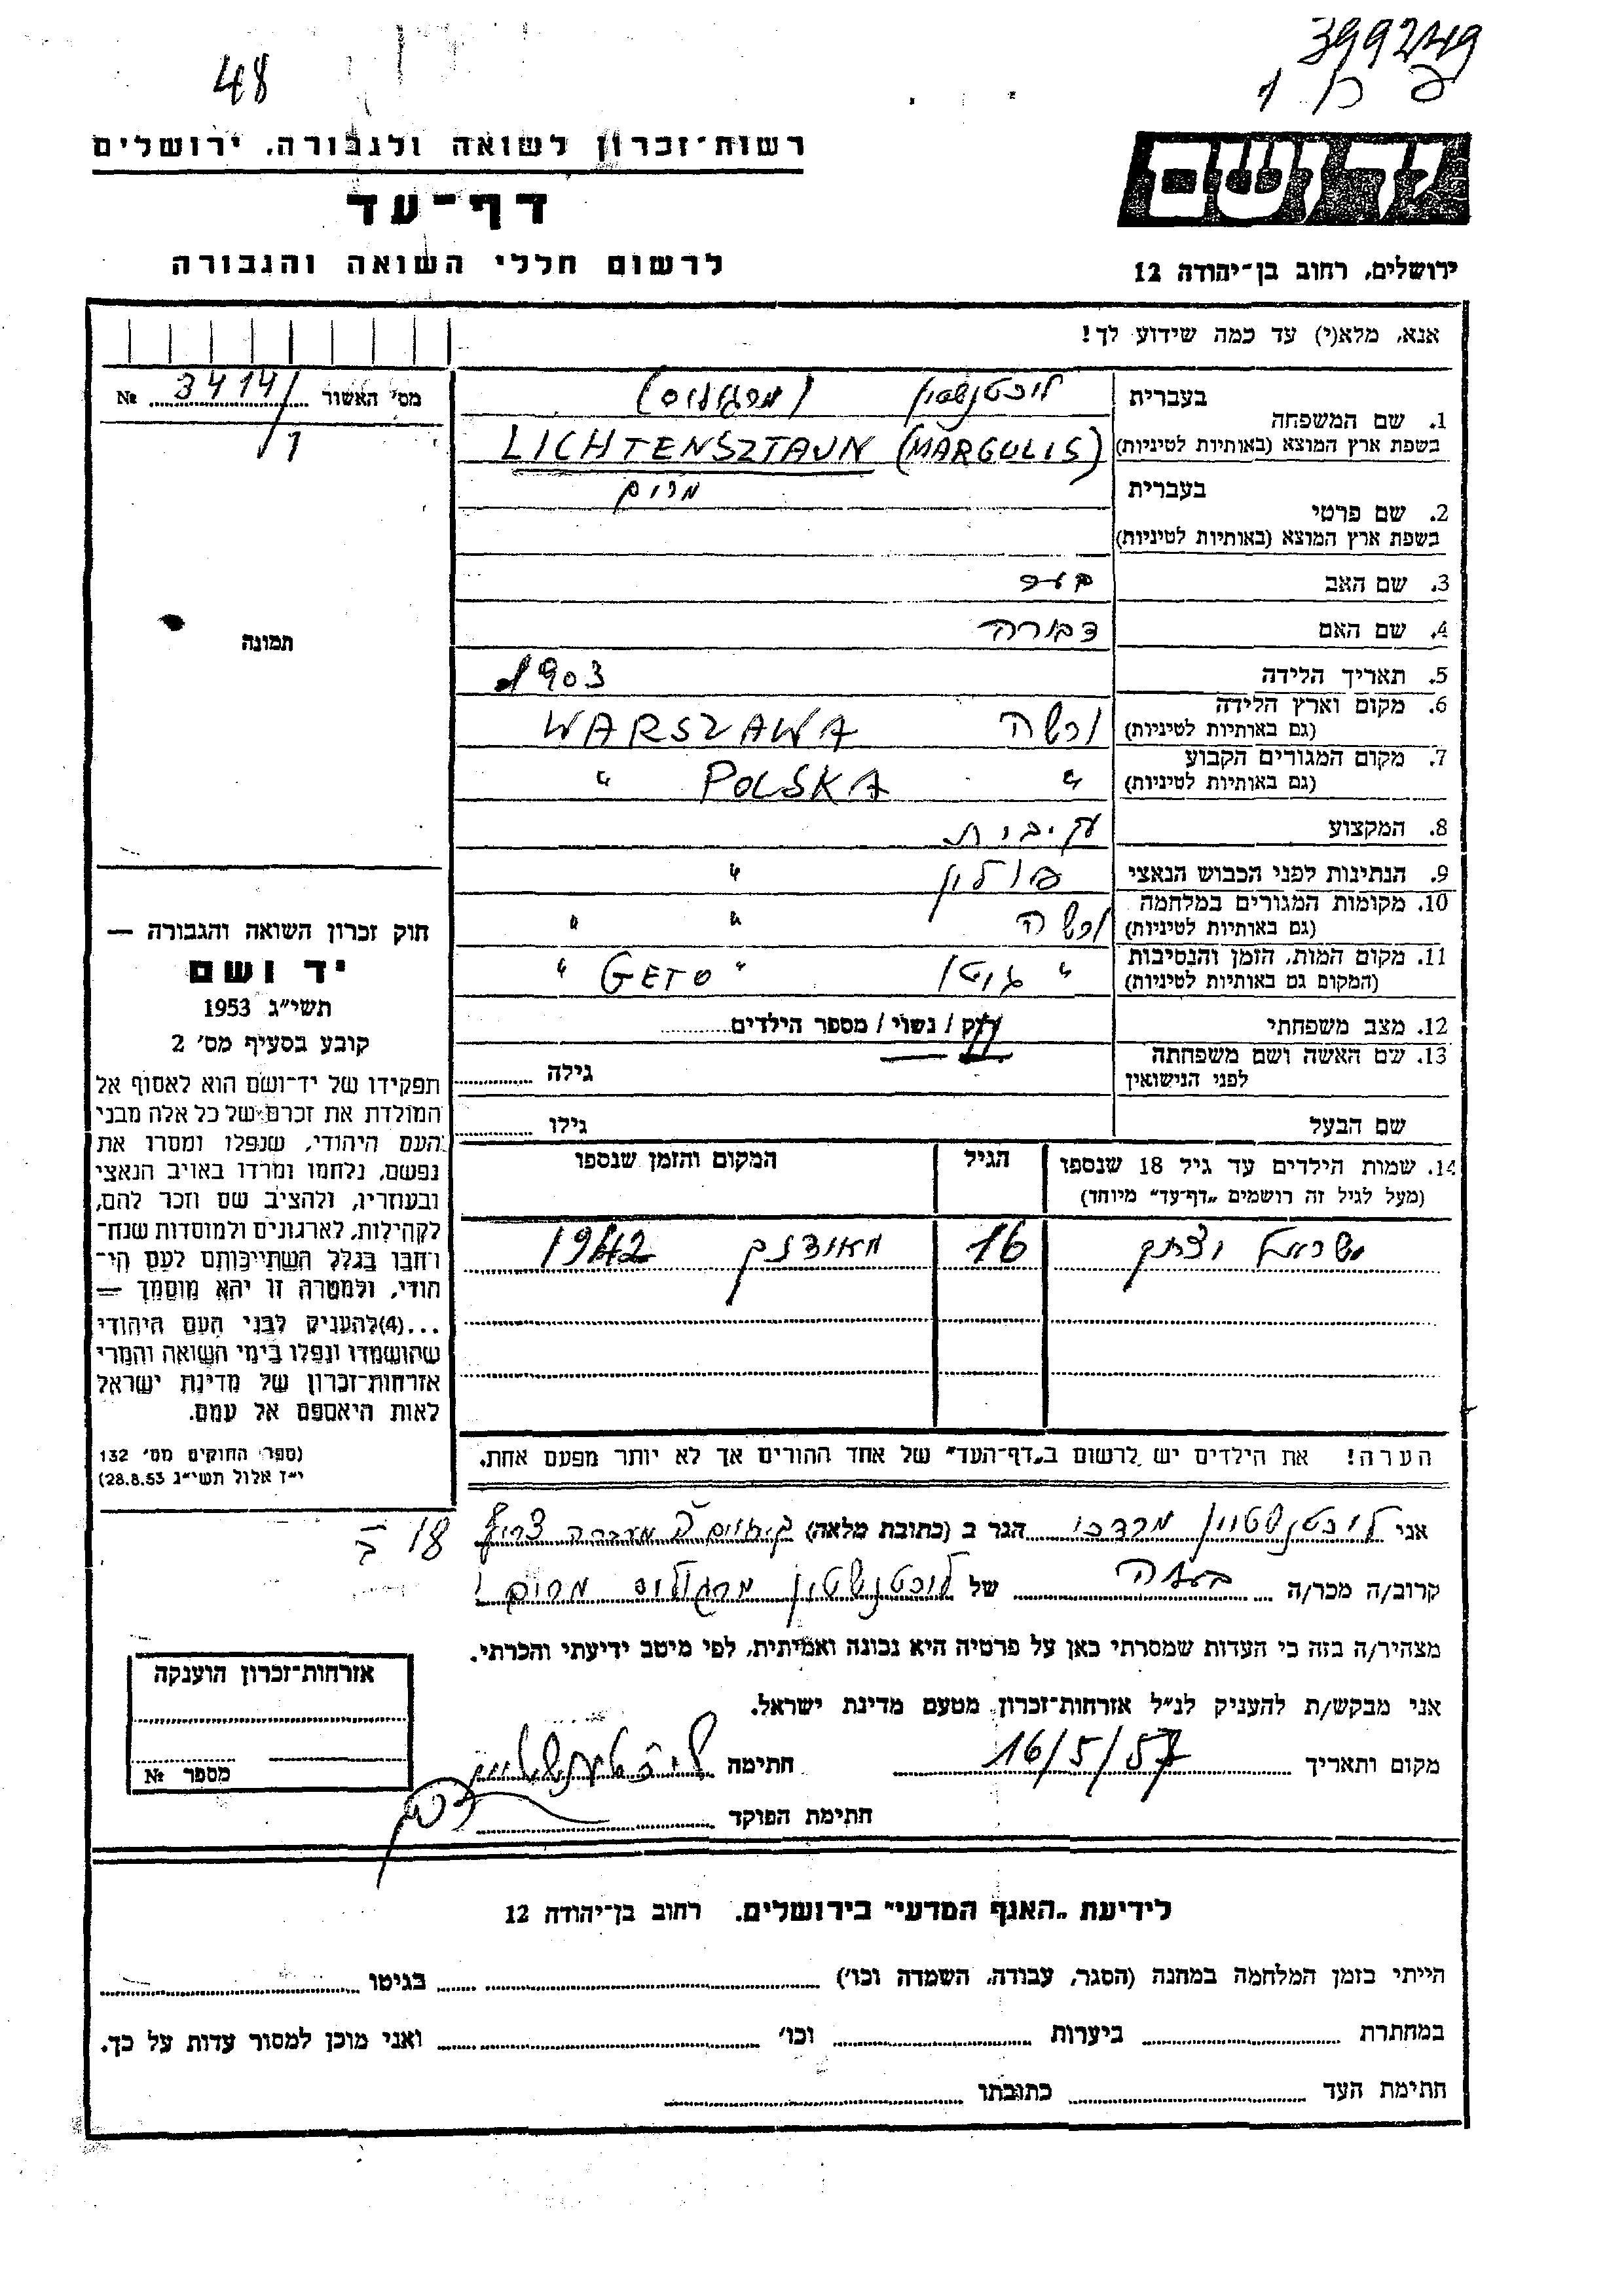 399249
48
רשות־זכרון לשואה ולגבורה, ירושלים
יד ושם
דף־עד
לרשום חללי השואה והגבורה
ירושלים, רחוב בן־יהודה 12
אנא, מלא(י) עד כמה שידוע לך!
מס׳ האשור № 3414/1
1. שם המשפחה
בעברית ליכטנשטין (מרגוליס)
בשפת ארץ המוצא (באותיות לטיניות) LICHTENSZTAJN (MARGULIS)
2. שם פרטי
בעברית מרים
בשפת ארץ המוצא (באותיות לטיניות)
3. שם האב
4. שם האם דבורה
תמונה
5. תאריך הלידה 1903
6. מקום וארץ הלידה ורשה WARSZAWA
(גם באותיות לטיניות)
7. מקום המגורים הקבוע " POLSKA "
(גם באותיות לטיניות)
8. המקצוע
9. הנתינות לפני הכבוש הנאצי פולין "
10. מקומות המגורים במלחמה ורשה " "
(גם באותיות לטיניות)
11. מקום המות, הזמן והנסיבות " גיטו " GETO "
(המקום גם באותיות לטיניות)
12. מצב משפחתי רוק / נשוי / מספר הילדים
13. שם האשה ושם משפחתה גילה
לפני הנישואין
שם הבעל גילו
חוק זכרון השואה והגבורה —
יד ושם
תשי״ג 1953
קובע בסעיף מס׳ 2
תפקידו של יד־ושם הוא לאסוף אל
המולדת את זכרם של כל אלה מבני
העם היהודי, שנפלו ומסרו את
נפשם, נלחמו ומרדו באויב הנאצי
ובעוזריו, ולהציב שם וזכר להם,
לקהילות, לארגונים ולמוסדות שנח־
רחבו בגלל השתייכותם לעם הי־
הודי, ולמטרה זו יהא מוסמך —
...(4)להעניק לבני העם היהודי
שהושמדו ונפלו בימי השואה והמרי
אזרחות־זכרון של מדינת ישראל
לאות היאספם אל עמם.
(ספר החוקים מס׳ 132
י״ז אלול תשי״ג 28.8.53)
14. שמות הילדים עד גיל 18 שנספו הגיל המקום והזמן שנספו
(מעל לגיל זה רושמים „דף־עד״ מיוחד)
ישראל יצחק 16 מאידנק 1942
הערה! את הילדים יש לרשום ב„דף־העד״ של אחד ההורים אך לא יותר מפעם אחת.
אני ליכטנשטיין מרדכי הגר ב (כתובת מלאה) צריף 18
קרוב/ה מכר/ה של ליכטנשטין מרגוליס מרים
מצהיר/ה בזה כי העדות שמסרתי כאן על פרטיה היא נכונה ואמיתית, לפי מיטב ידיעתי והכרתי.
אני מבקש/ת להעניק לנ״ל אזרחות־זכרון מטעם מדינת ישראל.
מקום ותאריך 16/5/57 חתימה ליכטנשטיין
חתימת הפוקד
אזרחות־זכרון הוענקה
מספר №
לידיעת „האגף המדעי״ בירושלים, רחוב בן־יהודה 12
הייתי בזמן המלחמה במחנה (הסגר, עבודה, השמדה וכו׳) בגיטו
במחתרת ביערות וכו׳ ואני מוכן למסור עדות על כך.
חתימת העד כתובתו